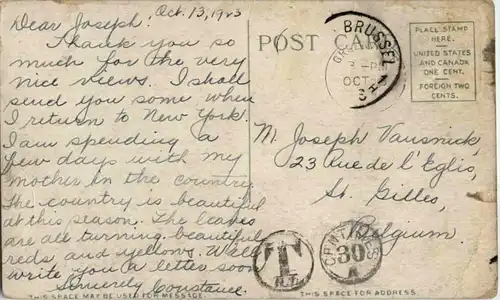 Dear Joseph! Oct. 13, 1923
Thank you so
much for the very
nice views. I shall
send you some when
I return to New York.
I am spending a
few days with my
mother in the country.
The country is beautiful
at this season. The leaves
are all turning beautiful
reds, and yellows. Will
write you a letter soon
Sincerely Constance.
THIS SPACE MAY BE USED FOR MESSAGE.
POST CARD
BRUSSEL
3-PM
OCT
3
PLACE STAMP
HERE.
UNITED STATES
AND CANADA
ONE CENT.
FOREIGN TWO
CENTS.
M. Joseph Vausnick
23 rue de l'Eglis
St. Gilles,
Belgium
T
CENTIMES
30
THIS SPACE FOR ADDRESS.